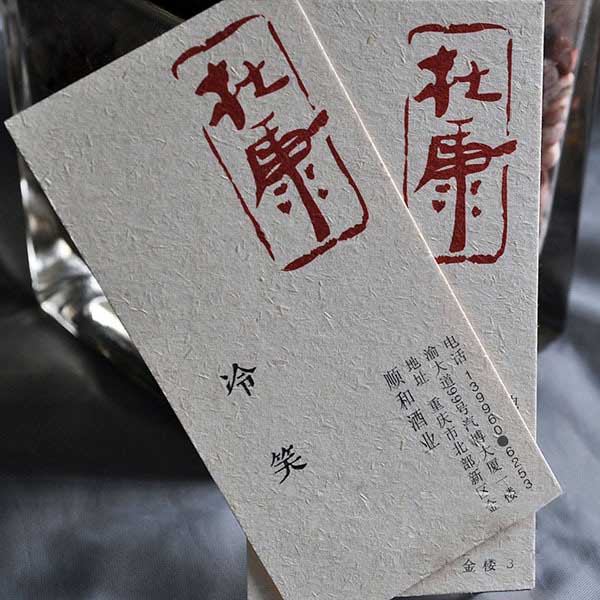 杜康
冷笑
顺和酒业
地址 重庆市北部新区金
渝大道99号汽博大厦二楼
电话 139960 6253
杜康
金 3